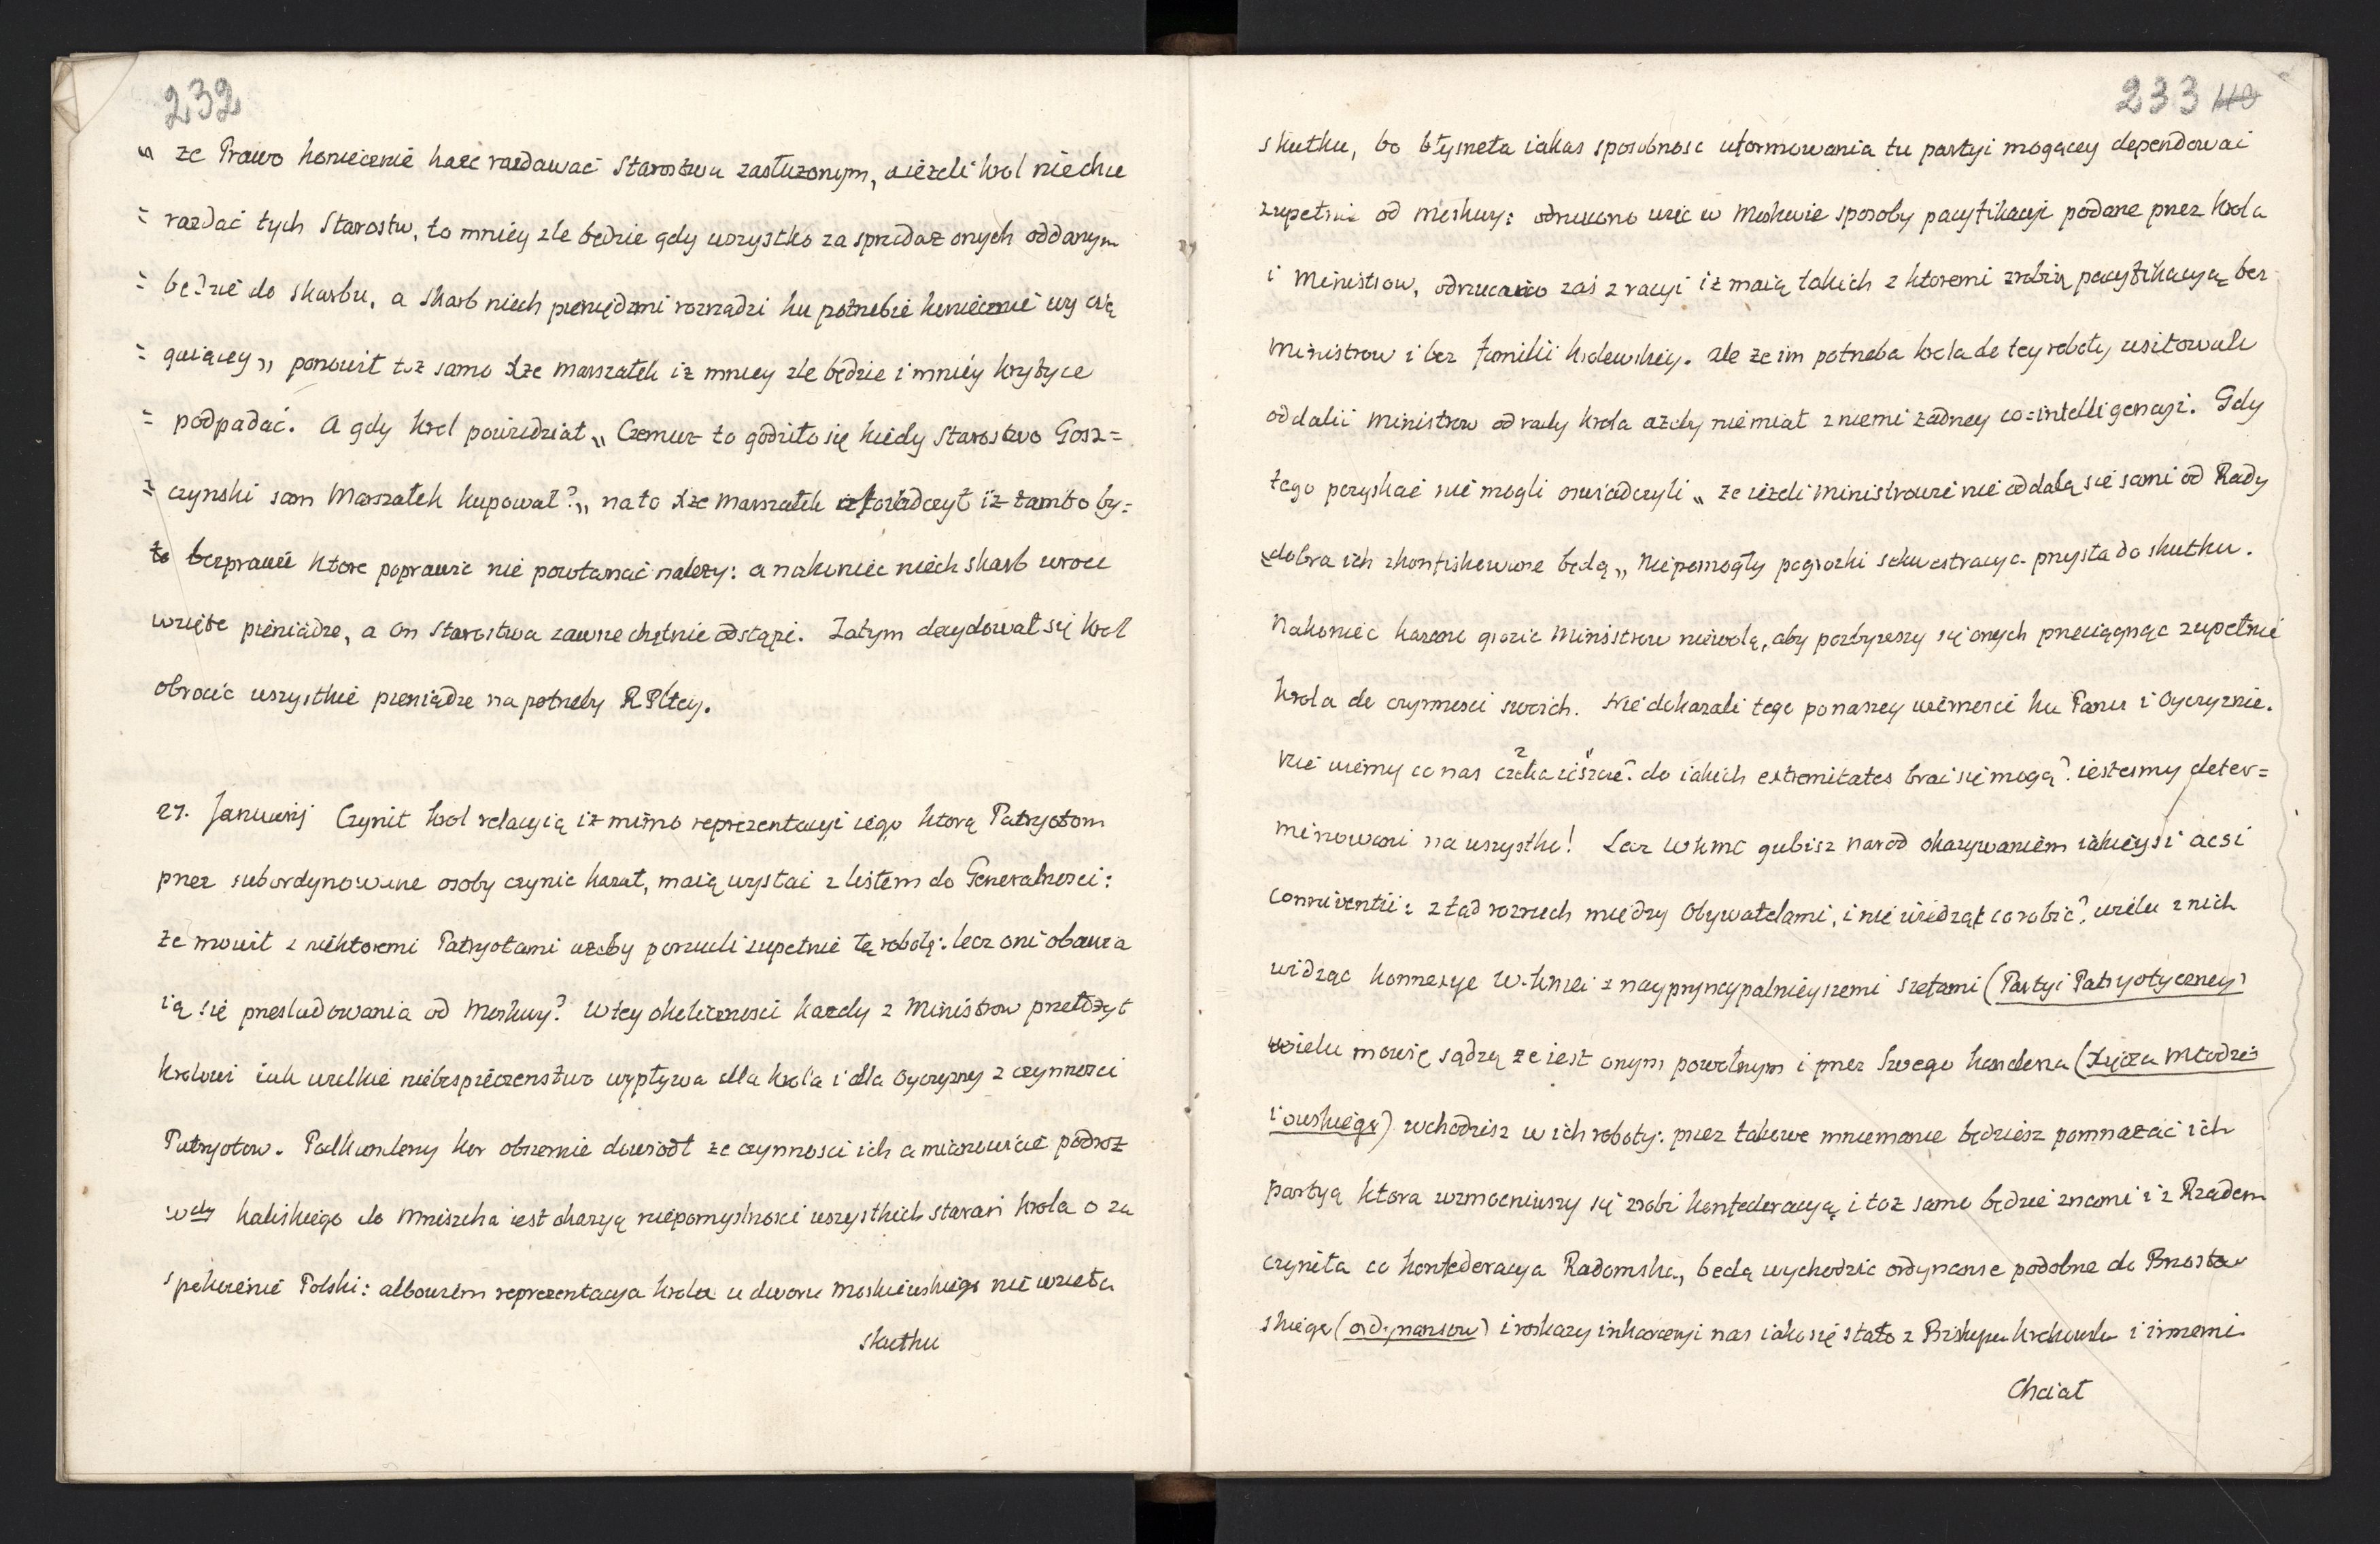 232
„ że Prawo koniecznie każe rozdawać Starostwa zasłużonym, a ieżeli krol niechce
= rozdać tych Starostw, to mniéy zle będzie gdy wszystko za sprzedaż onych oddanym
= będzie do skarbu, a Skarb niech pieniędzmi rozrządzi ku potrzebie koniecznie wycią
= gaiącey „ ponowił toż samo Xże Marszałek iż mniey zle będzie i mniéy krytyce
= podpadać. A gdy krol powiedział „ Czemuż to godziło się kiedy Starostwo Gosz=
= czynski sam Marszałek kupował? „ na to Xże Marszałek oswiadczył iż tamto by=
ło bezprawié ktore poprawic nie powtarzać należy: a nakoniec niech skarb wroci
wzięte pieniądze, a on Starostwa zawsze chętnie odstąpi. Zatym decydował się krol
obrocic wszystkie pieniądze na potrzeby RPltey.
27. Januarij Czynił krol relacyią iż mimo reprezentacyi iego ktorą Patryotom
przez subordynowane osoby czynic kazał, maią wysłac z listem do Generalnosci:
że mowił z niektoremi Patryotami ażeby porzucili zupełnie tę robotę: lecz oni obawia
ią się przesladowania od Moskwy? W tey okolicznosci każdy z Ministrow przełożył
krolowi iak wielkie niebespieczenstwo wypływa dla krola i dla Oyczyzny z czynnosci
Patryotow. Podkanclerzy kor obszernie dowiodł że czynnosci ich a mianowicie podroż
wdy kaliskiego do Mniszcha iest okazyą niepomyslnosci wszystkich staran krola o za
spokoienie Polski: albowiem reprezentacya krola u dworu Moskiewskiego nie wzieła
skutku
233 40
skutku, bo błysneła iakas sposobnosc uformowania tu partyi mogącey dependowac
zupełnie od Moskwy: odrzucono więc w Moskwie sposoby pacyfikacyi podane przez krola
i Ministrow, odrzucano zas z racyi iż maią takich z ktoremi zrobią pacyfikacyą bez
Ministrow i bez familii krolewskiéy. Ale że im potrzeba krola do tey roboty usiłowali
oddalic Ministrow od rady krola ażeby niemiał z niemi żadney co=intelligencyi. Gdy
tego pozyskać nie mogli oswiadczyli „ że ieżeli Ministrowie nie oddalą się sami od Rady
= dobra ich skonfiskowane będą „ Niepomogły pogrozki sekwestracya przyszła do skutku.
Nakoniec kazano grozic Ministrow niewolą, aby pozbywszy się onych przeciągnąc zupełnie
krola do czynnosci swoich. Nie dokazali tego po naszey wiernosci ku Panu i Oyczyznie.
nie wiemy co nas czeka ieszcze? do iakich extremitates brac się mogą? iestesmy deter=
minowani na wszystko! Lecz WKMc gubisz narod okazywaniem iakieysi acsi
conniventii: ztąd rozruch między Obywatelami, i nie wiedząc co robic? wielu z nich
widząc konnexye W. Kmci z nayprzyncypalnieyszemi szefami (Partyi Patryotyczney)
wielu mowię sądzą że iest onym powolnym i przez Swego kanclerza (Xiędza Młodzie
iowskiego) wchodzisz w ich roboty: przez takowe mniemanie będziesz pomnażac ich
partyą ktora wzmocniwszy się zrobi konfederacyą i toż samo będzie z nami i z Rządem
czyniła co konfederacya Radomska, będą wychodzic ordynanse podobne do Brzostow
skiego (ordynansow) i roskazy inkarceryi nas iako się stało z Biskupem krakowskim i innemi
Chciał